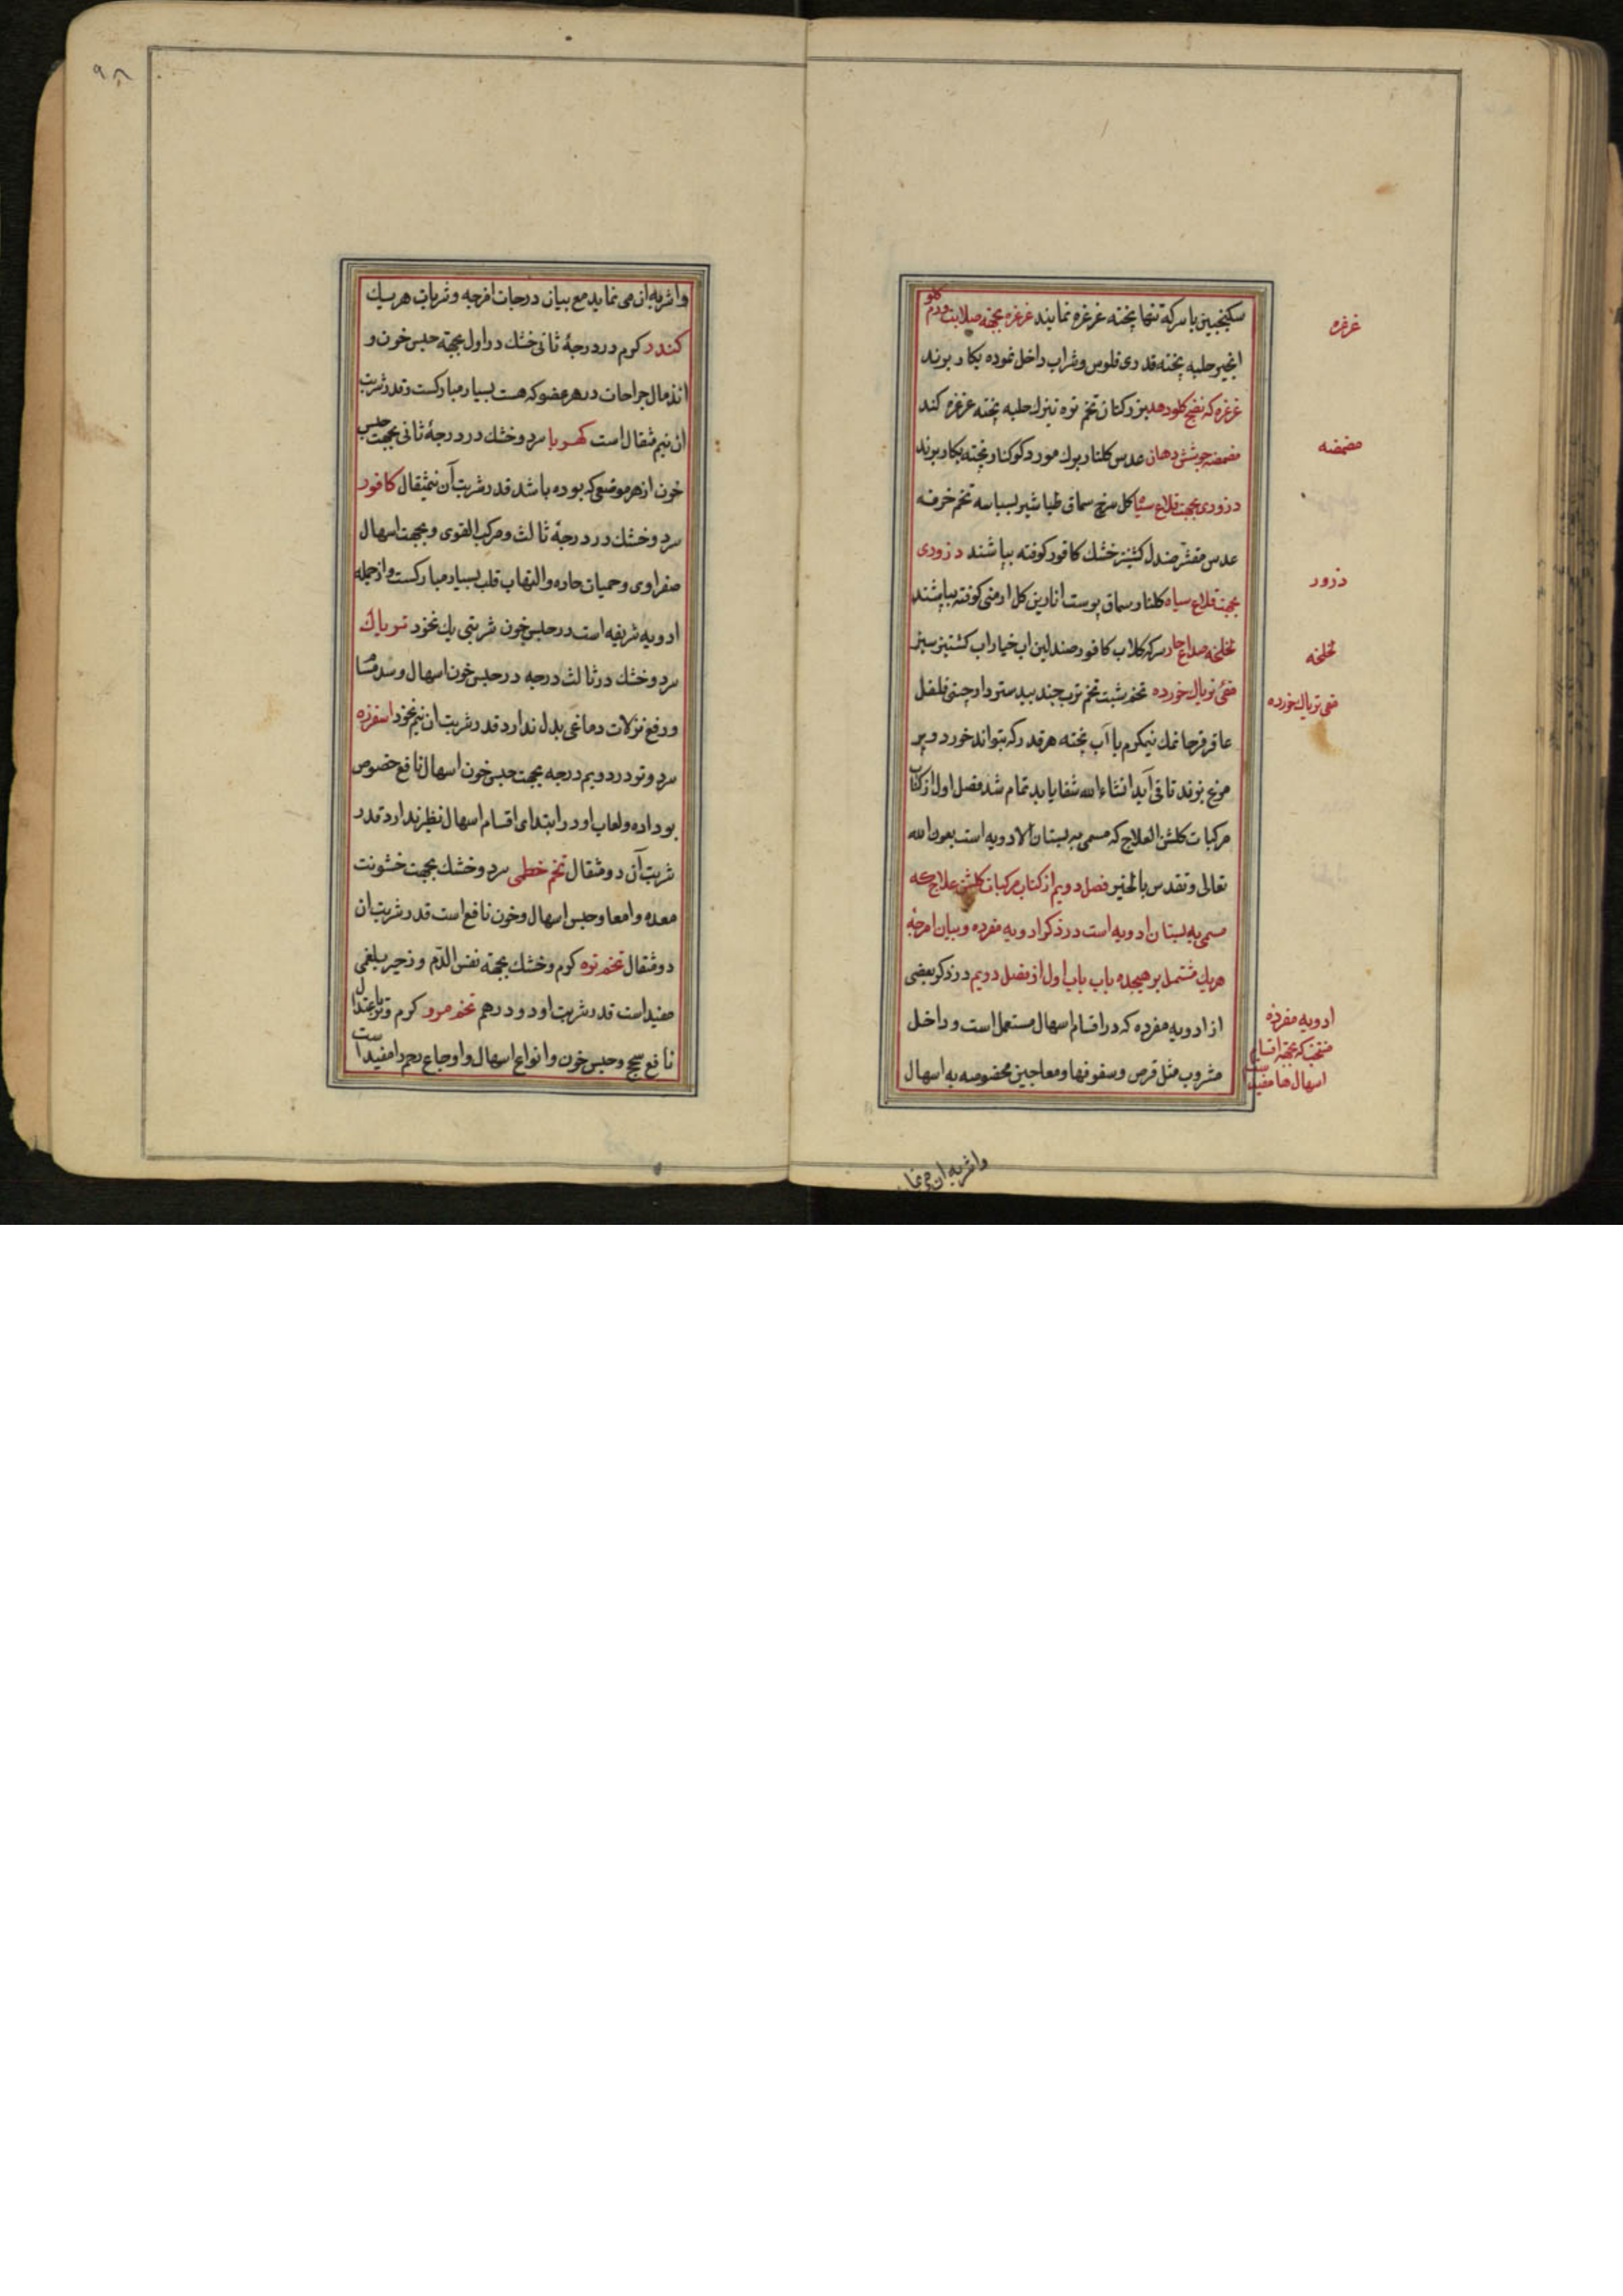 سکنجبین با سرکه تنها پخته غرغره نمایند غرغره بجهة صلابت و ورم کلو
انجیر حلبه پخته قدری فلوس و شراب داخل نموده بکار برند
غرغره که نضج کلو دهد بزر کتان تخم تره تیزک حلبه پخته غرغره کند
مضمضه جوشش دهان عدس کلنار برک مورد کوکنار پخته بکار برند
ذروری بجهت قلاع سیاه کل سرخ سماق طباشیر بسباسه تخم خرفه
عدس مقشر صندل کشنیز خشک کافور کوفته بپاشند ذروری
بجهت قلاع سیاه کلنار سماق پوست انارین کل ارمنی کوفته بپاشند
لخلخه صداع حار سرکه کلاب کافور صندلین اب خیار اب کشنیز سبز
مقی تریاک خورده تخم شبت تخم ترب جند بیدستر دارچینی فلفل
عاقرقرحا نمک نیمکرم با آب پخته هر قدر که بتواند خورد و پر
مرغ بزند تا قی آید انشاء الله شفا یابد تمام شد فصل اول از کتاب
مرکبات کلشن العلاج که مسمی به بستان الادویه است بعون الله
تعالی و تقدس بالخیر فصل دویم از کتاب مرکبات کلشن علاج که
مسمی به بستان ادویه است در ذکر ادویه مفرده و بیان امزجه
هریک مشتمل بر هیجده باب باب اول از فصل دویم در ذکر بعضی
از ادویه مفرده که در اقسام اسهال مستعمل است و داخل
مشروب مثل قرص و سفوفها و معاجین مخصوصه به اسهال
غرغره
مضمضه
ذرور
لخلخه
مقی تریاک خورده
ادویه مفرده
منتخبه که بجهة اقسام
اسهال ها مفید است
واشربه ان می نما
۹۸
واشربه ان می نماید مع بیان درجات امزجه و شربات هریک
کندر کرم در درجهٔ ثانی خشک در اول بجهة حبس خون و
اندمال جراحات در هر عضو که هست بسیار مبارکست و قدر شربت
ان نیم مثقال است کهربا سرد و خشک در درجهٔ ثانی بجهت حبس
خون از هر موضعی که بوده باشد قدر شربت آن نیمثقال کافور
سرد و خشک در درجهٔ ثالث و مرکب القوی و بجهت اسهال
صفراوی و حمیات حاره والتهاب قلب بسیار مبارکست و از جمله
ادویه شریفه است در حبس خون شربتی یک نخود تریاک
سرد و خشک در ثالث درجه در حبس خون اسهال و سد مسا
و رفع نزلات دماغی بدل ندارد قدر شربت ان نیم نخود اسفرزه
سرد و تر در دویم درجه بجهت حبس خون اسهال نافع خصوص
بو داده و لعاب او در ابتدای اقسام اسهال نظیر ندارد قدر
شربت آن دو مثقال تخم خطمی سرد و خشک بجهت خشونت
معده و امعا و حبس اسهال و خون نافع است قدر شربت ان
دو مثقال تخم تره کرم و خشک بجهة نفس الدم و زحیر بلغمی
مفید است قدر شربت او دو درهم تخم مرو کرم و تر با عتدال
نافع سحج و حبس خون و انواع اسهال و اوجاع رحم را مفید است